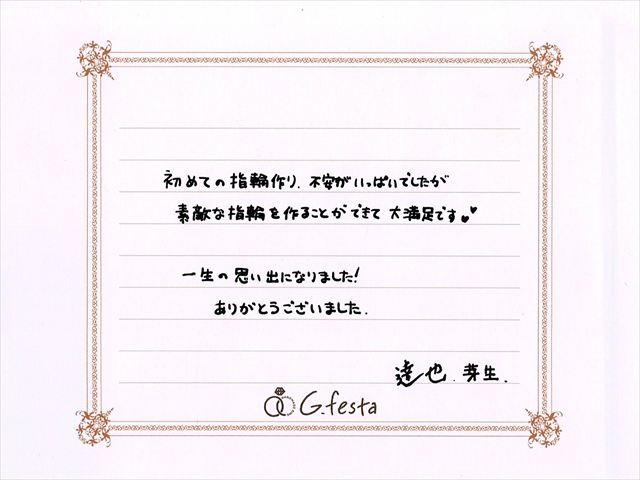 初めての指輪作り、不安がいっぱいでしたが
素敵な指輪を作ることができて 大満足です♥♥
一生の思い出になりました!
ありがとうございました.
達也. 芽生.
G.festa